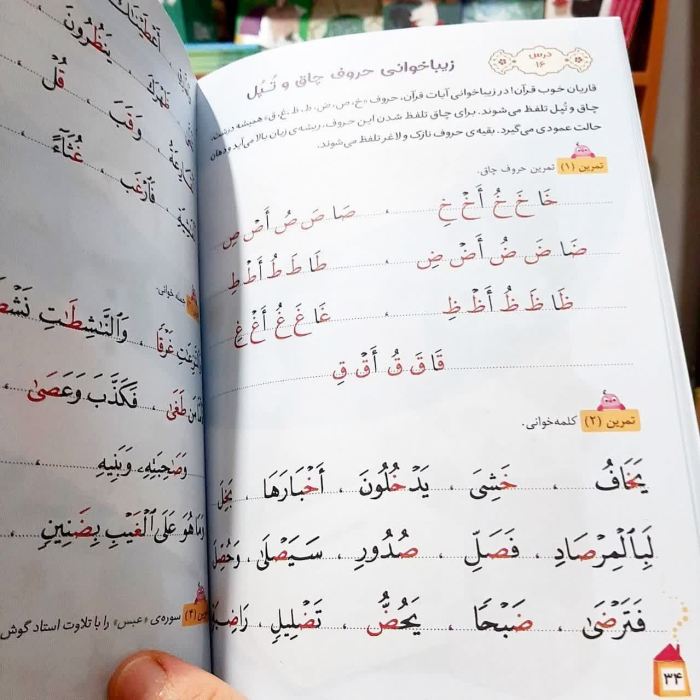 درس
۱۶
زیباخوانی حروف چاق و تُپُل
قاریان خوب قرآن! در زیباخوانی آیات قرآن، حروف «خ، ص، ض، ط، ظ، غ، ق» همیشه درشت،
چاق و تُپل تلفظ می‌شوند. برای چاق تلفظ شدن این حروف، ریشه‌ی زبان بالا می‌آید و دهان
حالت عمودی می‌گیرد. بقیه‌ی حروف نازک و لاغر تلفظ می‌شوند.
تمرین (۱) تمرین حروف چاق.
خَا خَ خُ أَخْ خِ ، صَا صَ صُ أَصْ صِ
ضَا ضَ ضُ أَضْ ضِ ، طَا طَ طُ أَطْ طِ
ظَا ظَ ظُ أَظْ ظِ ، غَا غَ غُ أَغْ غِ
قَا قَ قُ أَقْ قِ
تمرین (۲) کلمه‌خوانی.
يَخَافُ ، خَشِيَ ، يَدْخُلُونَ ، أَخْبَارَهَا ، بَخِلَ
لَبِالْمِرْصَادِ ، فَصَلِّ ، صُدُورِ ، سَيَصْلَىٰ ، وَحُصِّلَ
فَتَرْضَىٰ ، ضَبْحًا ، يَحُضُّ ، تَضْلِيلٍ ،
۳۴
يَنظُرُونَ
ظَهْرَكَ
وَقَبَ ، قُلْ
فَارْغَب ، غُثَآءً
جمله خوانی.
غَرْقًا ، وَٱلنَّـٰشِطَـٰتِ
مَن طَغَىٰ ، فَكَذَّبَ وَعَصَىٰ
وَصَـٰحِبَتِهِۦ وَبَنِيهِ
وَمَا هُوَ عَلَى ٱلْغَيْبِ بِضَنِينٍ
(۴) سوره‌ی «عبس» را با تلاوت استاد گوش